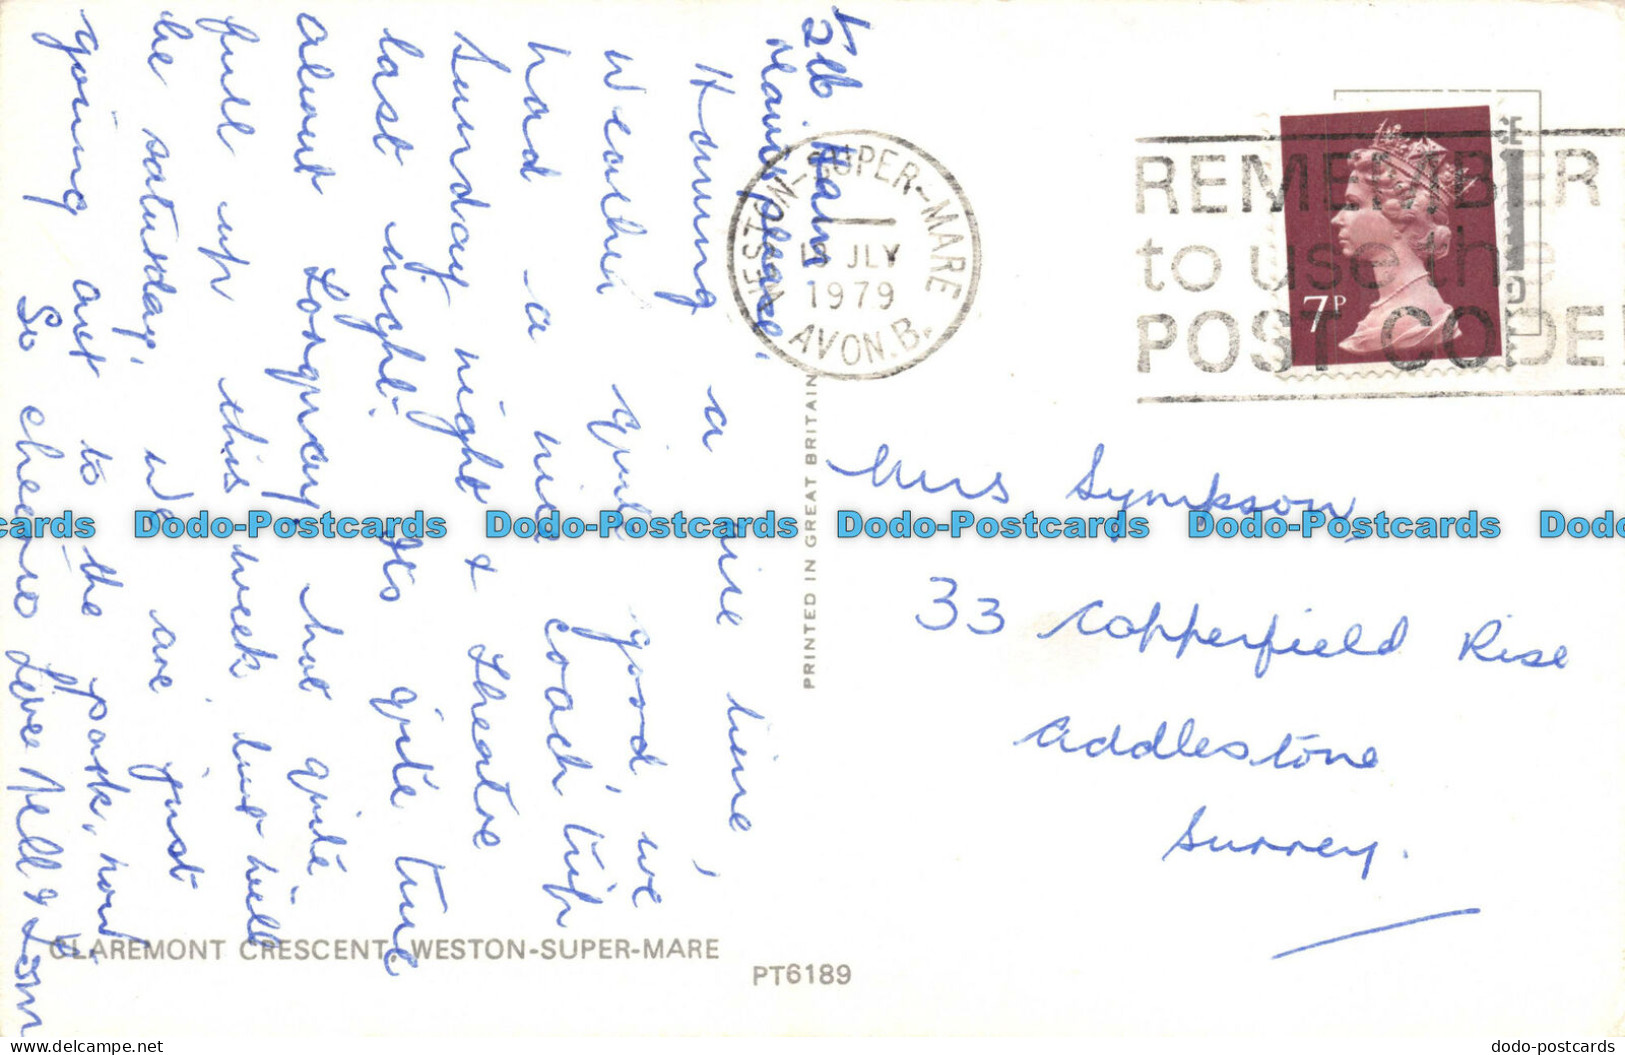 1/2 lb Ham
please.
Having a nice time
weather quite good, we
had a nice coach trip
Sunday night & theatre
last night. Its quite true
about Longway, but quite
full up this week but will
be saturday, we are just
going out to the park, now
So cheerio Love Nell & Tom
WESTON-SUPER-MARE
18 JLY
1979
AVON.B.
REMEMBER
to use the
POST CODE!
7P
Mrs Sympkson,
33 Copperfield Rise
Addlestone
Surrey.
PRINTED IN GREAT BRITAIN
Dodo-Postcards Dodo-Postcards Dodo-Postcards Dodo-Postcards
CLAREMONT CRESCENT, WESTON-SUPER-MARE
PT6189
dodo-postcards.com